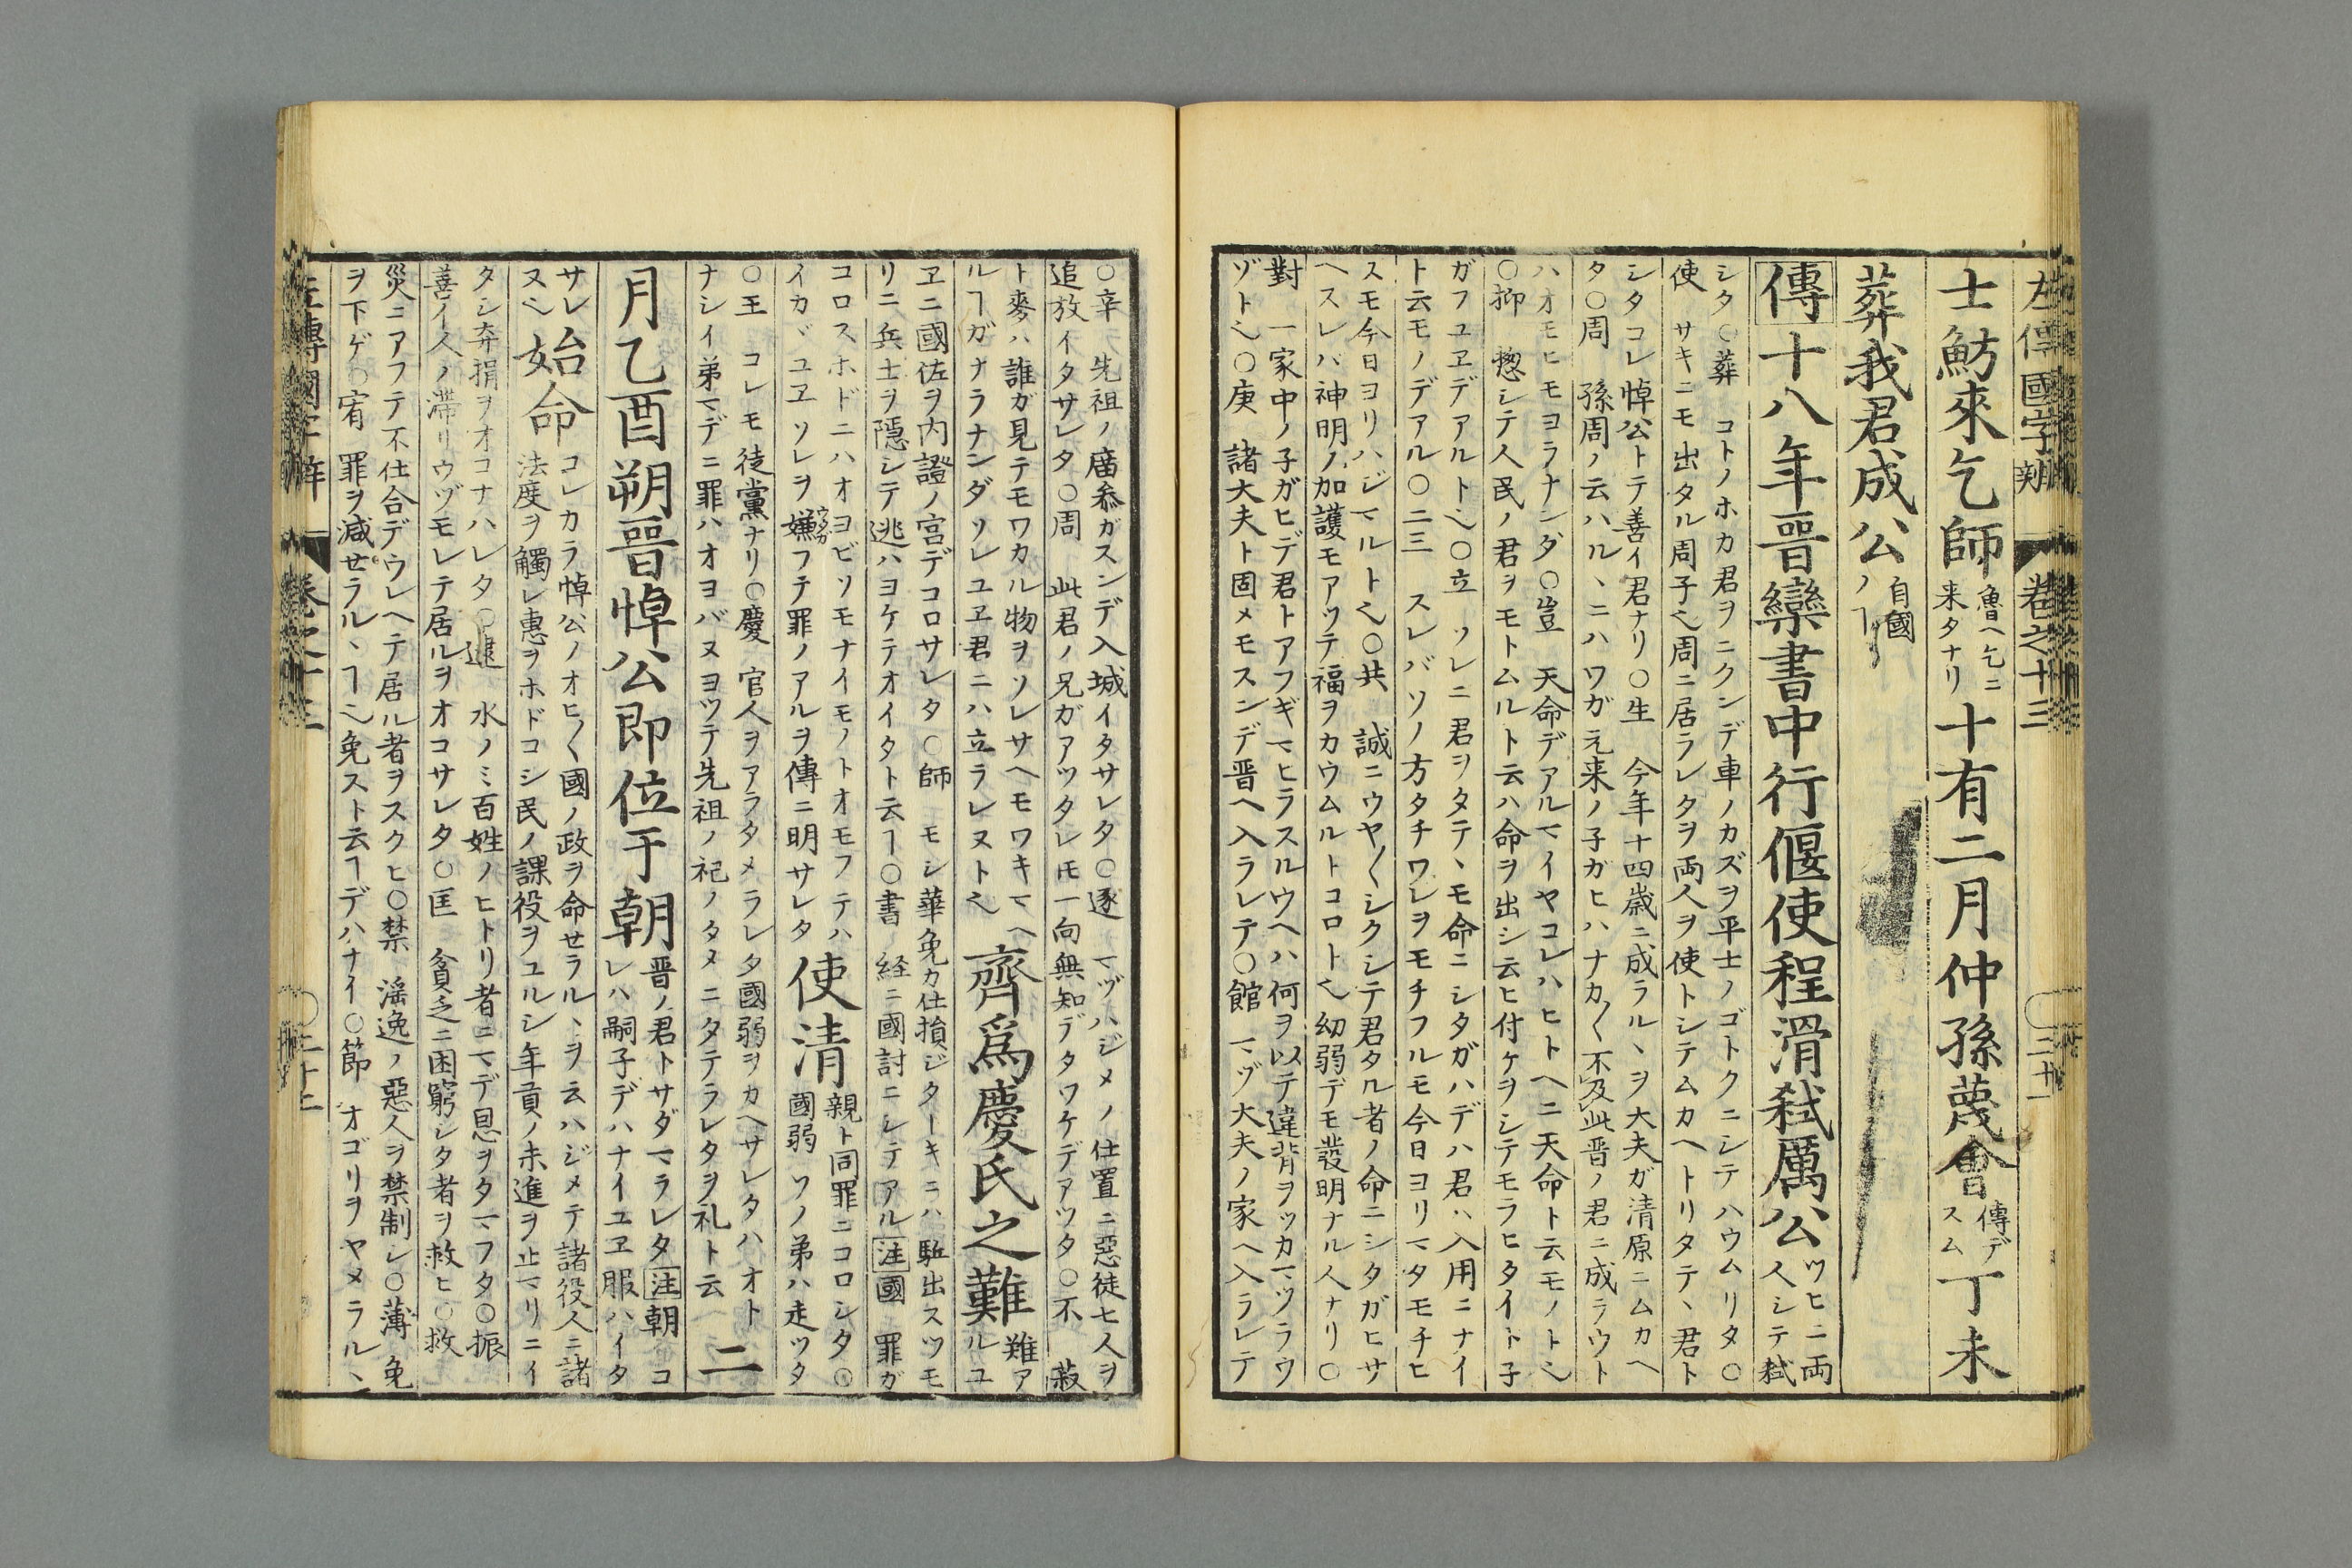 左傳國字辨 卷之十三 三十一
士魴來乞師 魯ヘ乞ニ 来タナリ 十有二月仲孫蔑會 傳デ スム 丁未
葬我君成公 自國 ノヿ
傳十八年晋欒書中行偃使程滑弑厲公 ツヒニ両 人シテ弑
シタ○葬 コトノホカ君ヲニクンデ車ノカズヲ平士ノゴトクニシテハウムリタ○
使 サキニモ出タル周子ヘ周ニ居ラレタヲ両人ヲ使トシテムカヘトリタテ、君ト
シタコレ悼公トテ善イ君ナリ○生 今年十四歳ニ成ラル、ヲ大夫ガ清原ニムカヘ
タ○周 孫周ノ云ハル、ニハワガ元来ノ子ガヒハナカ〱不及此晋ノ君ニ成ラウト
ハオモヒモヨラナンダ○豈 天命デアルマイヤコレハヒトヘニ天命ト云モノト也
○抑 惣シテ人民ノ君ヲモトムルト云ハ命ヲ出シ云ヒ付ケヲシテモラヒタイト子
ガフユヱデアルト也○立 ソレニ君ヲタテ、モ命ニシタガハデハ君ハ入用ニナイ
ト云モノデアル○二三 スレバソノ方タチワレヲモチフルモ今日ヨリマタモチヒ
スモ今日ヨリハジマルト也○共 誠ニウヤ〱シクシテ君タル者ノ命ニシタガヒサ
ヘスレバ神明ノ加護モアツテ福ヲカウムルトコロト也幼弱デモ發明ナル人ナリ○
對 一家中ノ子ガヒデ君トアフギマヒラスルウヘハ何ヲ以テ違背ヲツカマツラウ
ゾト也○庚 諸大夫ト固メモスンデ晋ヘ入ラレテ○館 マヅ大夫ノ家ヘ入ラレテ
○辛 先祖ノ廣叅ガスンデ入城イタサレタ○逐 マヅハジメノ仕置ニ惡徒七人ヲ
追放イタサレタ○周 此君ノ兄ガアツタレ𪜈一向無知デタワケデアツタ○不 菽
ト麥ハ誰ガ見テモワカル物ヲソレサヘモワキマヘ
ルヿガナラナンダソレユヱ君ニハ立ラレヌト也 齊爲慶氏之難 難ア ルユ
ヱニ國佐ヲ内證ノ宮デコロサレタ○師 モシ華免カ仕損ジターキニハ駈出スツモ
リニ兵士ヲ隠シテ逃ハヨケテオイタト云ヿ○書 経ニ國討ニシテアル注國 罪ガ
コロスホドニハオヨビソモナイモノトオモフテハ
イカヾユヱソレヲ嫌フテ罪ノアルヲ傳ニ明サレタ 使清 親ト同罪ニコロシタ○ 國弱 ソノ弟ハ走ツタ
○王 コレモ徒黨ナリ○慶 官人ヲアラタメラレタ國弱ヲカヘサレタハオト
ナシイ弟マデニ罪ハオヨバヌヨツテ先祖ノ祀ノタメニタテラレタヲ礼ト云 二
月乙酉朔晋悼公即位于朝 晋ノ君トサダマラレタ注朝 コ レハ嗣子デハナイユヱ服ハイタ
サレ ヌ也 始命 コレカラ悼公ノオヒ〱國ノ政ヲ命せラル、ヲ云ハジメテ諸役人ニ諸
法度ヲ觸レ惠ヲホドコシ民ノ課役ヲユルシ年貢ノ未進ヲ止マリニイ
タシ弃捐ヲオコナハレタ○逮 水ノミ百姓ノヒトリ者ニマデ恩ヲタマフタ○振
善イ人ノ滞リウヅモレテ居ルヲオコサレタ○匡 貧乏ニ困窮シタ者ヲ救ヒ○救
災ニアフテ不仕合デウレヘテ居ル者ヲスクヒ○禁 滛逸ノ惡人ヲ禁制シ○薄 免
ヲ下ゲ○宥 罪ヲ減せラル、ヿ也免スト云ヿデハナイ○節 オゴリヲヤメラル、
左傳國字辨 卷之十三